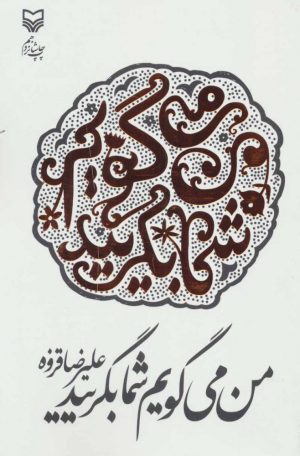 چاپ شانزدهم
من می گویم
شما بگریید
من می گویم شما بگریید
علیرضا قزوه